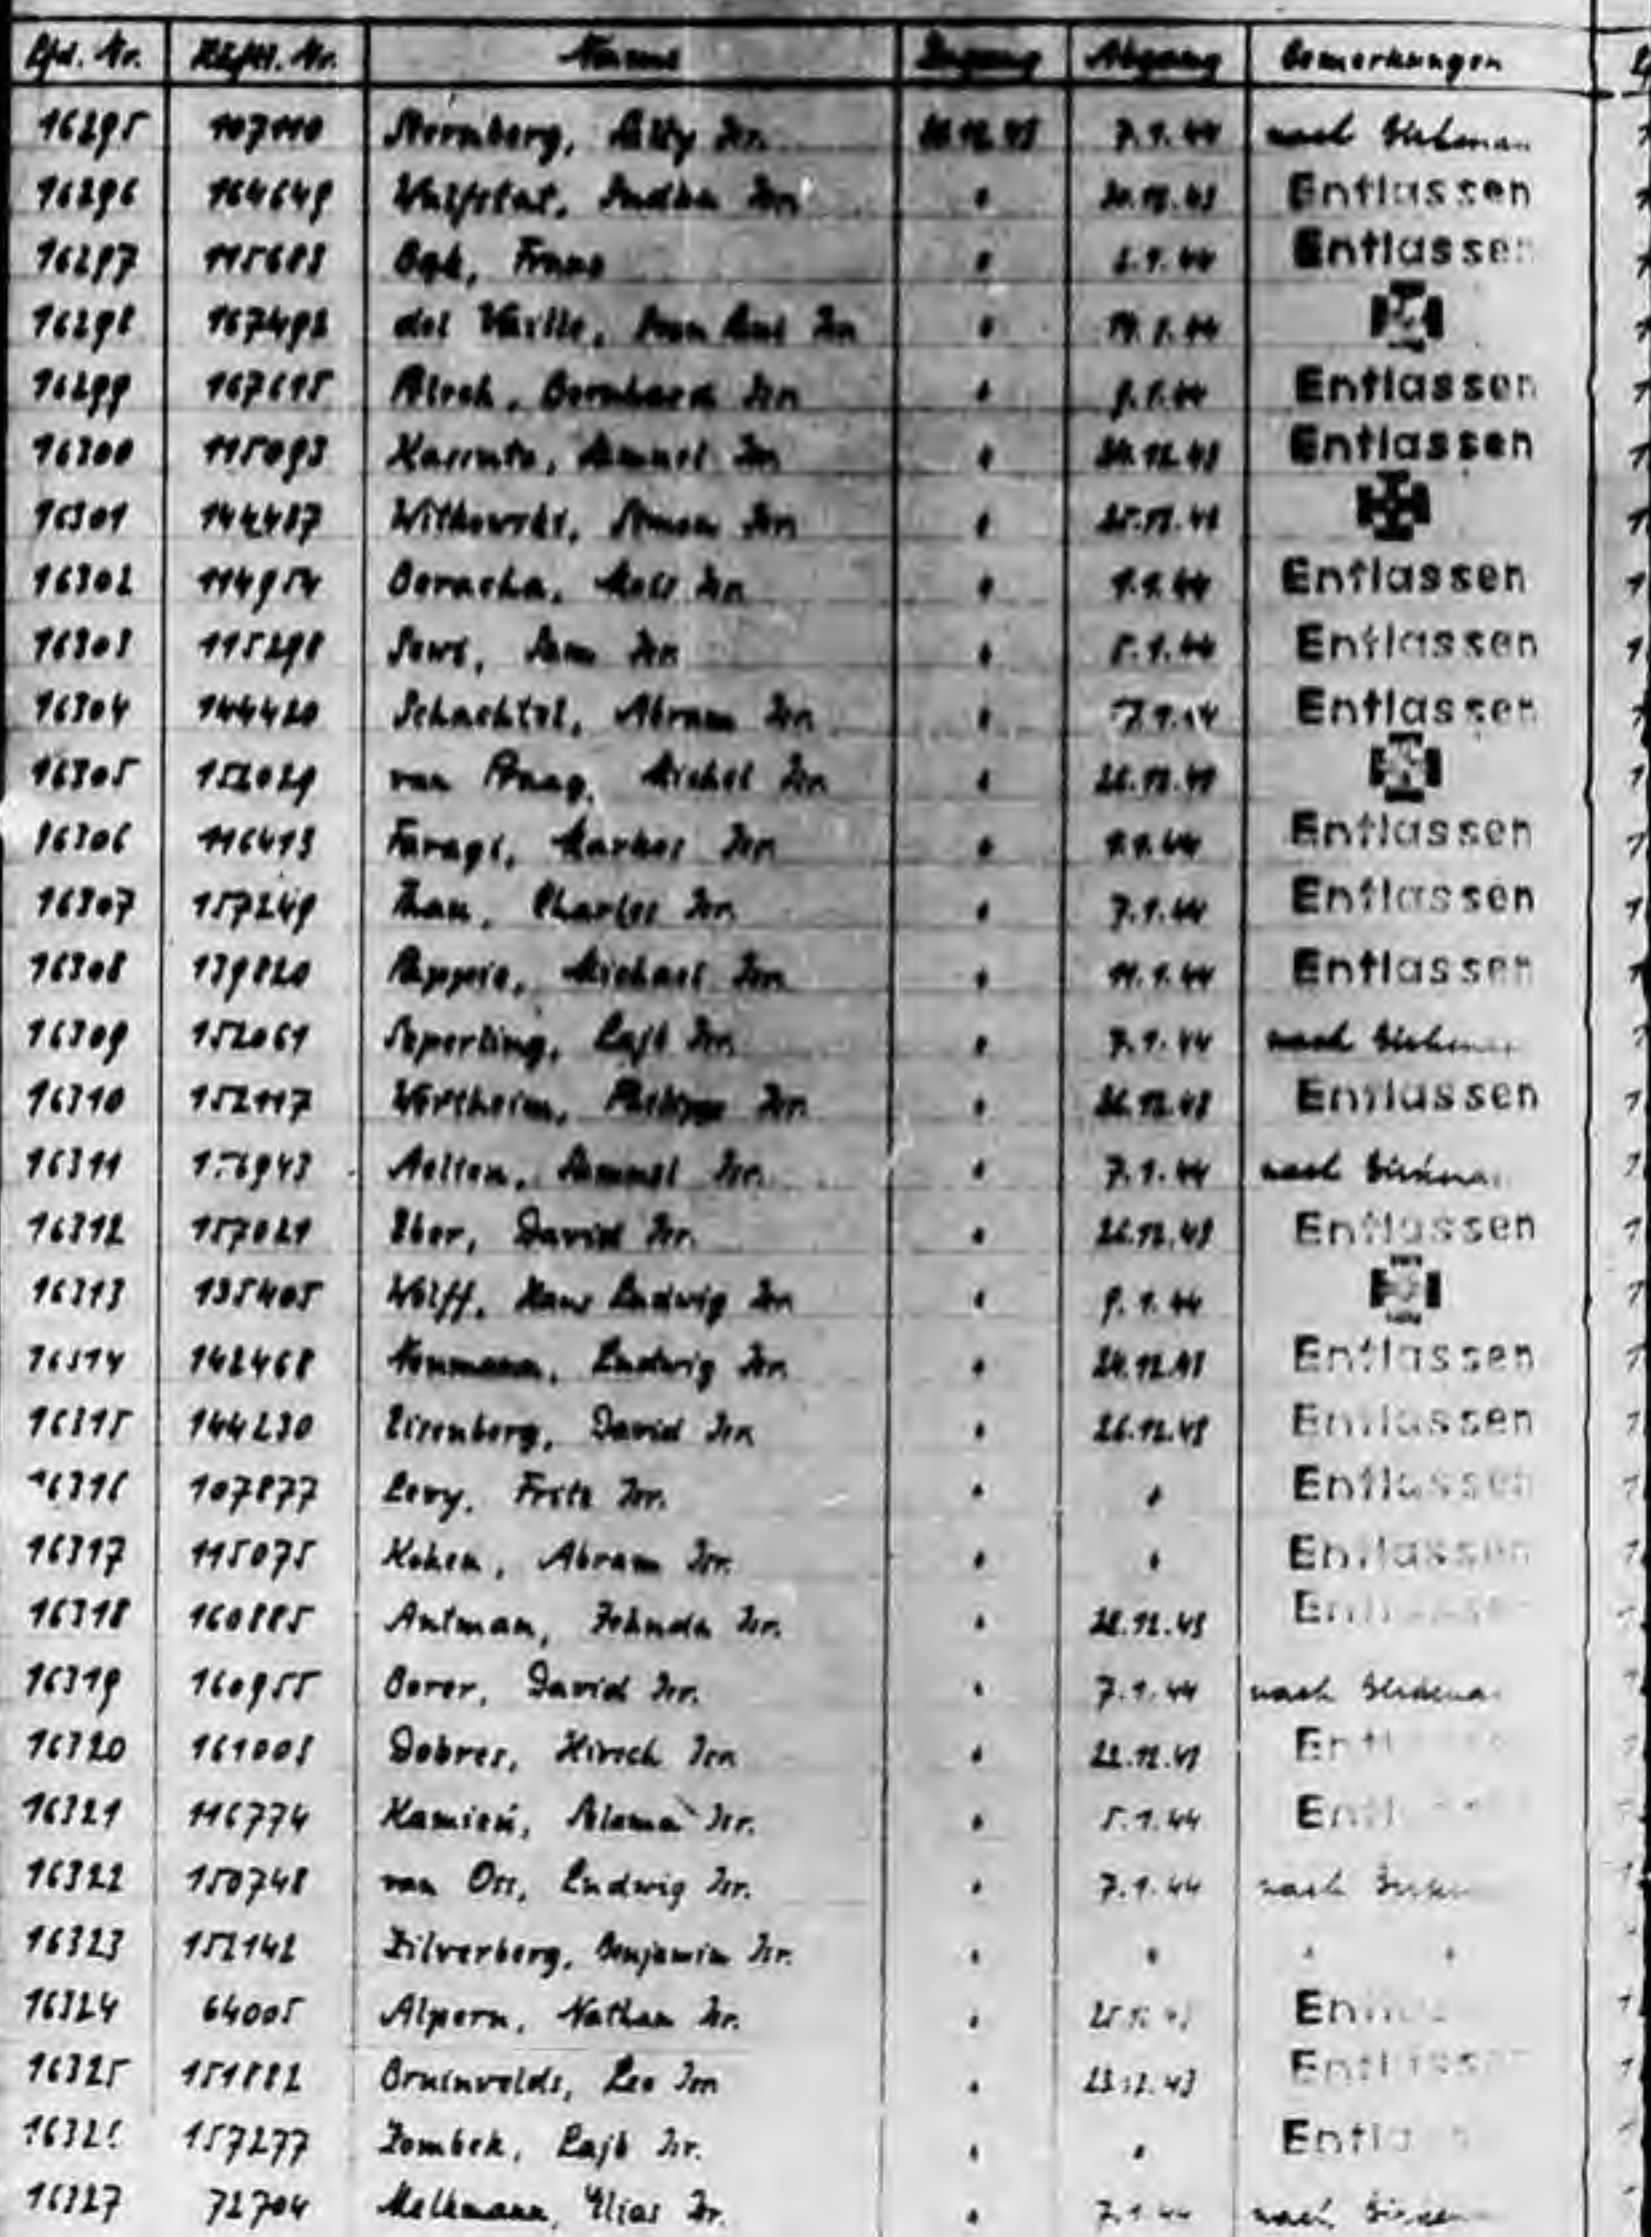 Lfd. Nr. Häftl. Nr. Name Zugang Abgang Bemerkungen
16295 107110 Sternberg, Willy Isr. 20.12.43 7.1.44 nach Birkenau
16296 164649 Isr. " 20.12.43 Entlassen
16297 115683 Franz " 2.1.44 Entlassen
16298 167492 del Isr. " 14.1.44
16299 167615 Bernhard Isr. " 9.1.44 Entlassen
16300 115093 Samuel Isr. " 20.12.43 Entlassen
16301 144487 Witkowski, Simon Isr. " 25.12.43
16302 114954 Beracha, Isr. " 1.1.44 Entlassen
16303 115298 Sam Isr. " 5.1.44 Entlassen
16304 144420 Schachtel, Abram Isr. " 7.1.44 Entlassen
16305 152029 van Praag, Michel Isr. " 26.12.43
16306 116413 Faragi, Markos Isr. " 1.1.44 Entlassen
16307 157249 Thau, Charles Isr. " 7.1.44 Entlassen
16308 139820 Michael Isr. " 11.1.44 Entlassen
16309 152061 Szperling, Lajb Isr. " 7.1.44 nach Birkenau
16310 152117 Wertheim, Philipp Isr. " 26.12.43 Entlassen
16311 Isr. " 7.1.44 nach Birkenau
16312 157021 Eber, David Isr. " 26.12.43 Entlassen
16313 135405 Wolff, Hans Ludwig Isr. " 9.1.44
16314 142468 Neumann, Ludwig Isr. " 24.12.43 Entlassen
16315 144230 Eisenberg, David Isr. " 26.12.43 Entlassen
16316 107877 Levy, Fritz Isr. " " Entlassen
16317 115075 Kohen, Abram Isr. " " Entlassen
16318 160885 Antman, Jehuda Isr. " 28.12.43 Entlassen
16319 160955 Borer, David Isr. " 7.1.44 nach Birkenau
16320 161003 Dobres, Hirsch Isr. " 22.12.43 Entlassen
16321 116774 Kamień, Isr. " 5.1.44 Entlassen
16322 150748 van Oss, Ludwig Isr. " 7.1.44 nach Birkenau
16323 152142 Zilverberg, Benjamin Isr. " " " "
16324 64005 Alpern, Nathan Isr. " Entlassen
16325 151882 Bruinvelds, Leo Isr. " 23.12.43 Entlassen
16326 157277 Zombek, Lajb Isr. " " Entlassen
16327 72704 Melkmann, Elias Isr. " 7.1.44 nach Birkenau